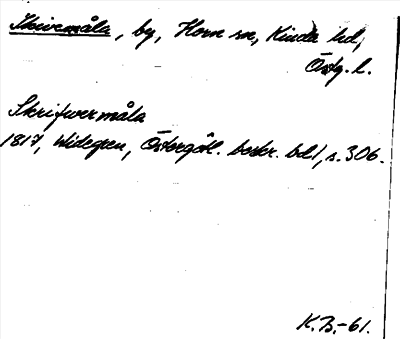 Skrivemåla, by, Horn sn, Kinda hd,
Östg. l.
Skrifwermåla
1817, Widegren, Östergötl. beskr. bd 1, s. 306.
K.B.-61.